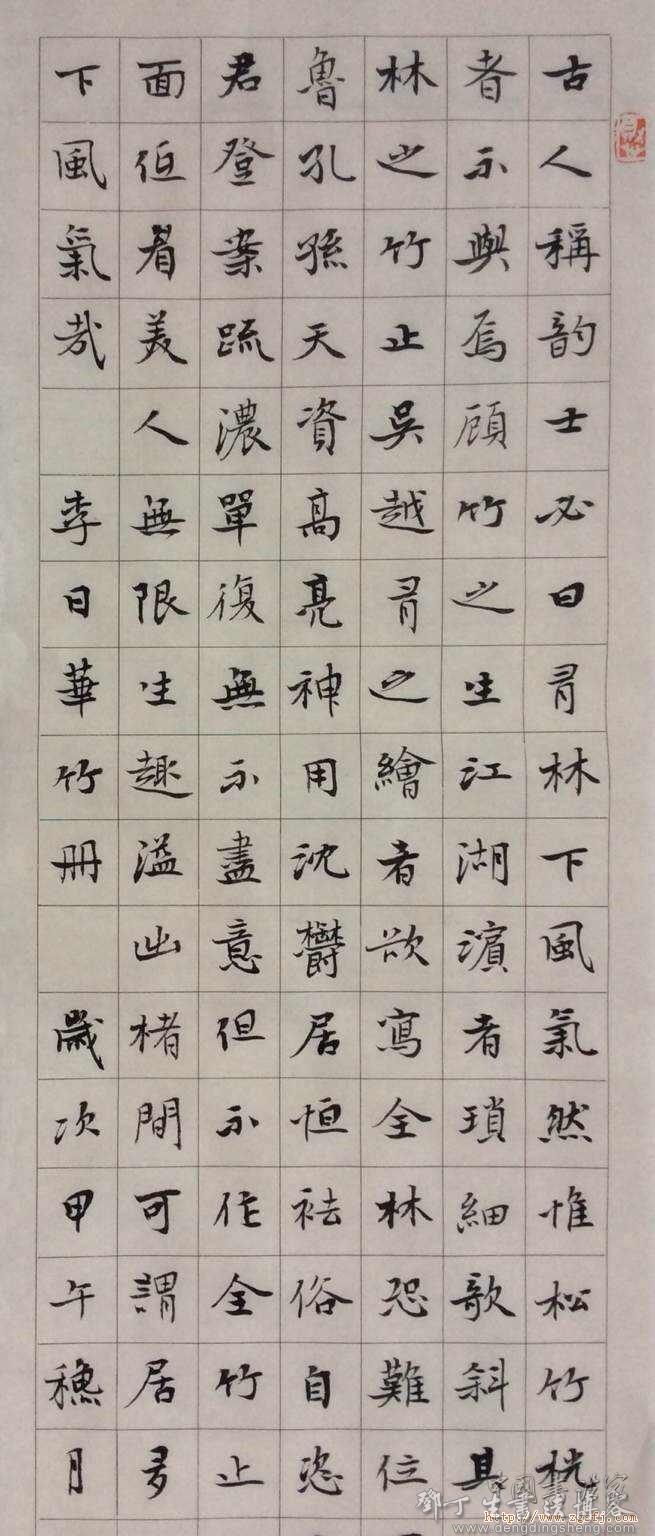 古人稱韵士必曰有林下風氣然惟松竹桄
者不與焉顧竹之生江湖濱者瑣細欹斜具
林之竹止吳越有之繪者欲寫全林恐難位
魯孔孫天資高亮神用沈鬱居恒祛俗自恣
君登案疏濃單復無不盡意但不作全竹止
面但看美人無限生趣溢出楮間可謂居多
下風氣哉 李日華竹冊 歲次甲午穗月
鄧丁生書法博客
www.dengdingsheng.com